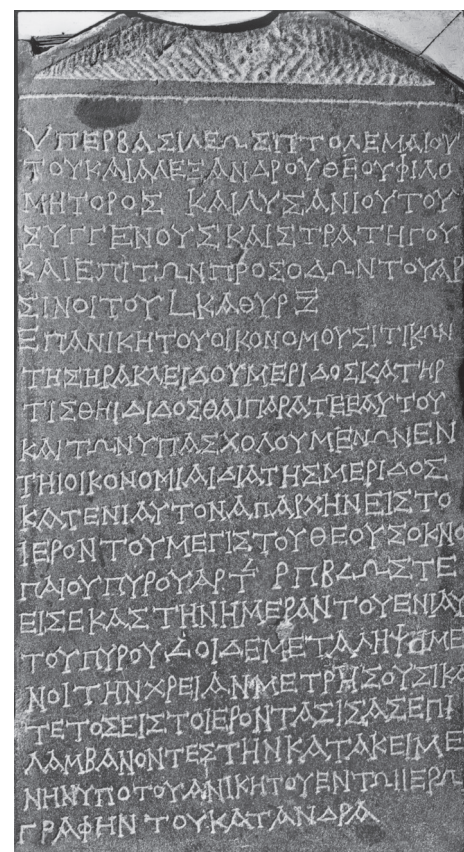 ΥΠΕΡΒΑΣΙΛΕΩΣΠΤΟΛΕΜΑΙΟΥ
ΤΟΥΚΑΙΑΛΕΞΑΝΔΡΟΥΘΕΟΥΦΙΛΟ
ΜΗΤΟΡΟΣ ΚΑΙΛΥΣΑΝΙΟΥΤΟΥ
ΣΥΓΓΕΝΟΥΣΚΑΙΣΤΡΑΤΗΓΟΥ
ΚΑΙΕΠΙΤΩΝΠΡΟΣΟΔΩΝΤΟΥΑΡ
ΣΙΝΟΙΤΟΥ LΚΑΘΥΡ Ζ̅
ΕΠΑΝΙΚΗΤΟΥΟΙΚΟΝΟΜΟΥΣΙΤΙΚΩΝ
ΤΗΣΗΡΑΚΛΕΙΔΟΥΜΕΡΙΔΟΣΚΑΤΗΡ
ΤΙΣΘΗΙΔΙΔΟΣΘΑΙΠΑΡΑΤΕΕΑΥΤΟΥ
ΚΑΙΤΩΝΥΠΑΣΧΟΛΟΥΜΕΝΩΝΕΝ
ΤΗΙΟΙΚΟΝΟΜΙΑΙΔΙΑΤΗΣΜΕΡΙΔΟΣ
ΚΑΤΕΝΙΑΥΤΟΝΑΠΑΡΧΗΝΕΙΣΤΟ
ΙΕΡΟΝΤΟΥΜΕΓΙΣΤΟΥΘΕΟΥΣΟΚΝΟ
ΠΑΙΟΥΠΥΡΟΥΑΡΤ ΡΠΒ∠ΩΣΤΕ
ΕΙΣΕΚΑΣΤΗΝΗΜΕΡΑΝΤΟΥΕΝΙΑΥ
ΤΟΥΠΥΡΟΥ∠ΟΙΔΕΜΕΤΑΛΗΨΟΜΕ
ΝΟΙΤΗΝΧΡΕΙΑΝΜΕΤΡΗΣΟΥΣΙΚΑ
ΤΕΤΟΣΕΙΣΤΟΙΕΡΟΝΤΑΣΙΣΑΣΕΠΙ
ΛΑΜΒΑΝΟΝΤΕΣΤΗΝΚΑΤΑΚΕΙΜΕ
ΝΗΝΥΠΟΤΟΥΑΝΙΚΗΤΟΥΕΝΤΩΙΙΕΡΩ
ΓΡΑΦΗΝΤΟΥΚΑΤΑΝΔΡΑ